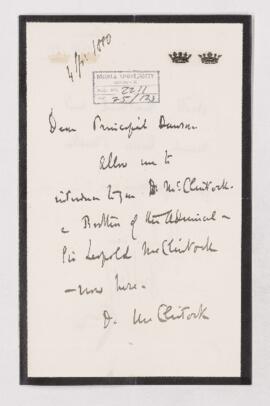 1880
McGILL UNIVERSITY
ACC. NO. 2211
REF. 25/123
Dear Principal Dawson
Allow me to
introduce to you Dr McClintock.
a Brother of the Admiral -
Sir Leopold McClintock
- now here -
D. McClintock